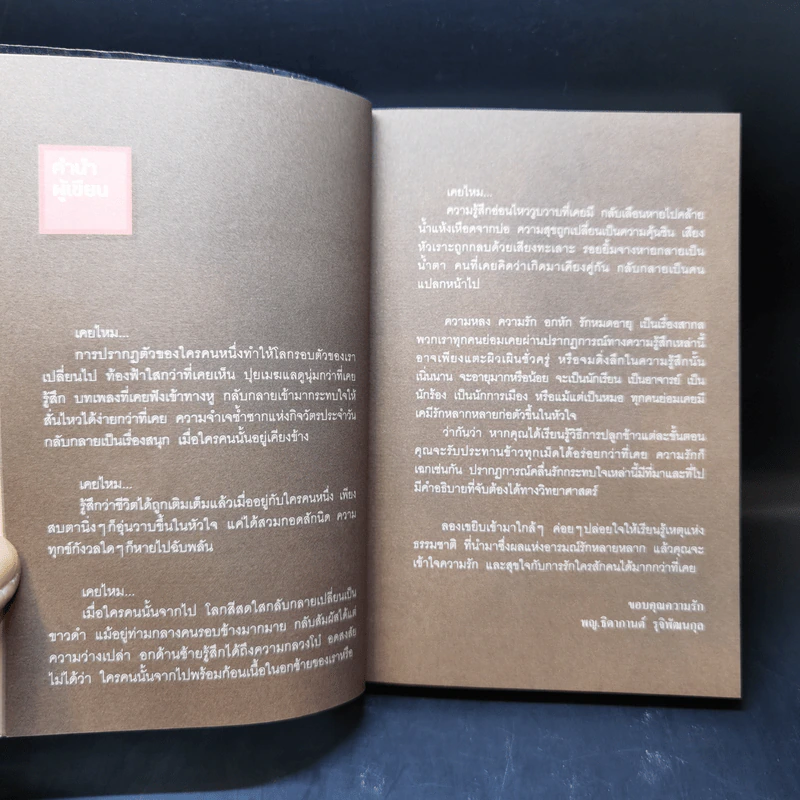 คำนำ
ผู้เขียน
เคยไหม...
การปรากฏตัวของใครคนหนึ่งทำให้โลกรอบตัวของเรา
เปลี่ยนไป ท้องฟ้าใสกว่าที่เคยเห็น ปุยเมฆแลดูนุ่มกว่าที่เคย
รู้สึก บทเพลงที่เคยฟังเข้าทางหู กลับกลายเข้ามากระทบใจให้
สั่นไหวได้ง่ายกว่าที่เคย ความจำเจซ้ำซากแห่งกิจวัตรประจำวัน
กลับกลายเป็นเรื่องสนุก เมื่อใครคนนั้นอยู่เคียงข้าง
เคยไหม...
รู้สึกว่าชีวิตได้ถูกเติมเต็มแล้วเมื่ออยู่กับใครคนหนึ่ง เพียง
สบตานิ่งๆก็อุ่นวาบขึ้นในหัวใจ แค่ได้สวมกอดสักนิด ความ
ทุกข์กังวลใดๆก็หายไปฉับพลัน
เคยไหม...
เมื่อใครคนนั้นจากไป โลกสีสดใสกลับกลายเปลี่ยนเป็น
ขาวดำ แม้อยู่ท่ามกลางคนรอบข้างมากมาย กลับสัมผัสได้แต่
ความว่างเปล่า อกด้านซ้ายรู้สึกได้ถึงความกลวงโบ๋ อดสงสัย
ไม่ได้ว่า ใครคนนั้นจากไปพร้อมก้อนเนื้อในอกซ้ายของเราหรือ
เคยไหม...
ความรู้สึกอ่อนไหววูบวาบที่เคยมี กลับเลือนหายไปคล้าย
น้ำแห้งเหือดจากบ่อ ความสุขถูกเปลี่ยนเป็นความคุ้นชิน เสียง
หัวเราะถูกกลบด้วยเสียงทะเลาะ รอยยิ้มจางหายกลายเป็น
น้ำตา คนที่เคยคิดว่าเกิดมาเคียงคู่กัน กลับกลายเป็นคน
แปลกหน้าไป
ความหลง ความรัก อกหัก รักหมดอายุ เป็นเรื่องสากล
พวกเราทุกคนย่อมเคยผ่านปรากฏการณ์ทางความรู้สึกเหล่านี้
อาจเพียงแตะผิวเผินชั่วครู่ หรือจมดิ่งลึกในความรู้สึกนั้น
เนิ่นนาน จะอายุมากหรือน้อย จะเป็นนักเรียน เป็นอาจารย์ เป็น
นักร้อง เป็นนักการเมือง หรือแม้แต่เป็นหมอ ทุกคนย่อมเคยมี
เคมีรักหลากหลายก่อตัวขึ้นในหัวใจ
ว่ากันว่า หากคุณได้เรียนรู้วิธีการปลูกข้าวแต่ละขั้นตอน
คุณจะรับประทานข้าวทุกเม็ดได้อร่อยกว่าที่เคย ความรักก็
เฉกเช่นกัน ปรากฏการณ์คลื่นรักกระทบใจเหล่านี้มีที่มาและที่ไป
มีคำอธิบายที่จับต้องได้ทางวิทยาศาสตร์
ลองเขยิบเข้ามาใกล้ๆ ค่อยๆปล่อยใจให้เรียนรู้เหตุแห่ง
ธรรมชาติ ที่นำมาซึ่งผลแห่งอารมณ์รักหลายหลาก แล้วคุณจะ
เข้าใจความรัก และสุขใจกับการรักใครสักคนได้มากกว่าที่เคย
ขอบคุณความรัก
พญ.ธิดากานต์ รุจิพัฒนกุล